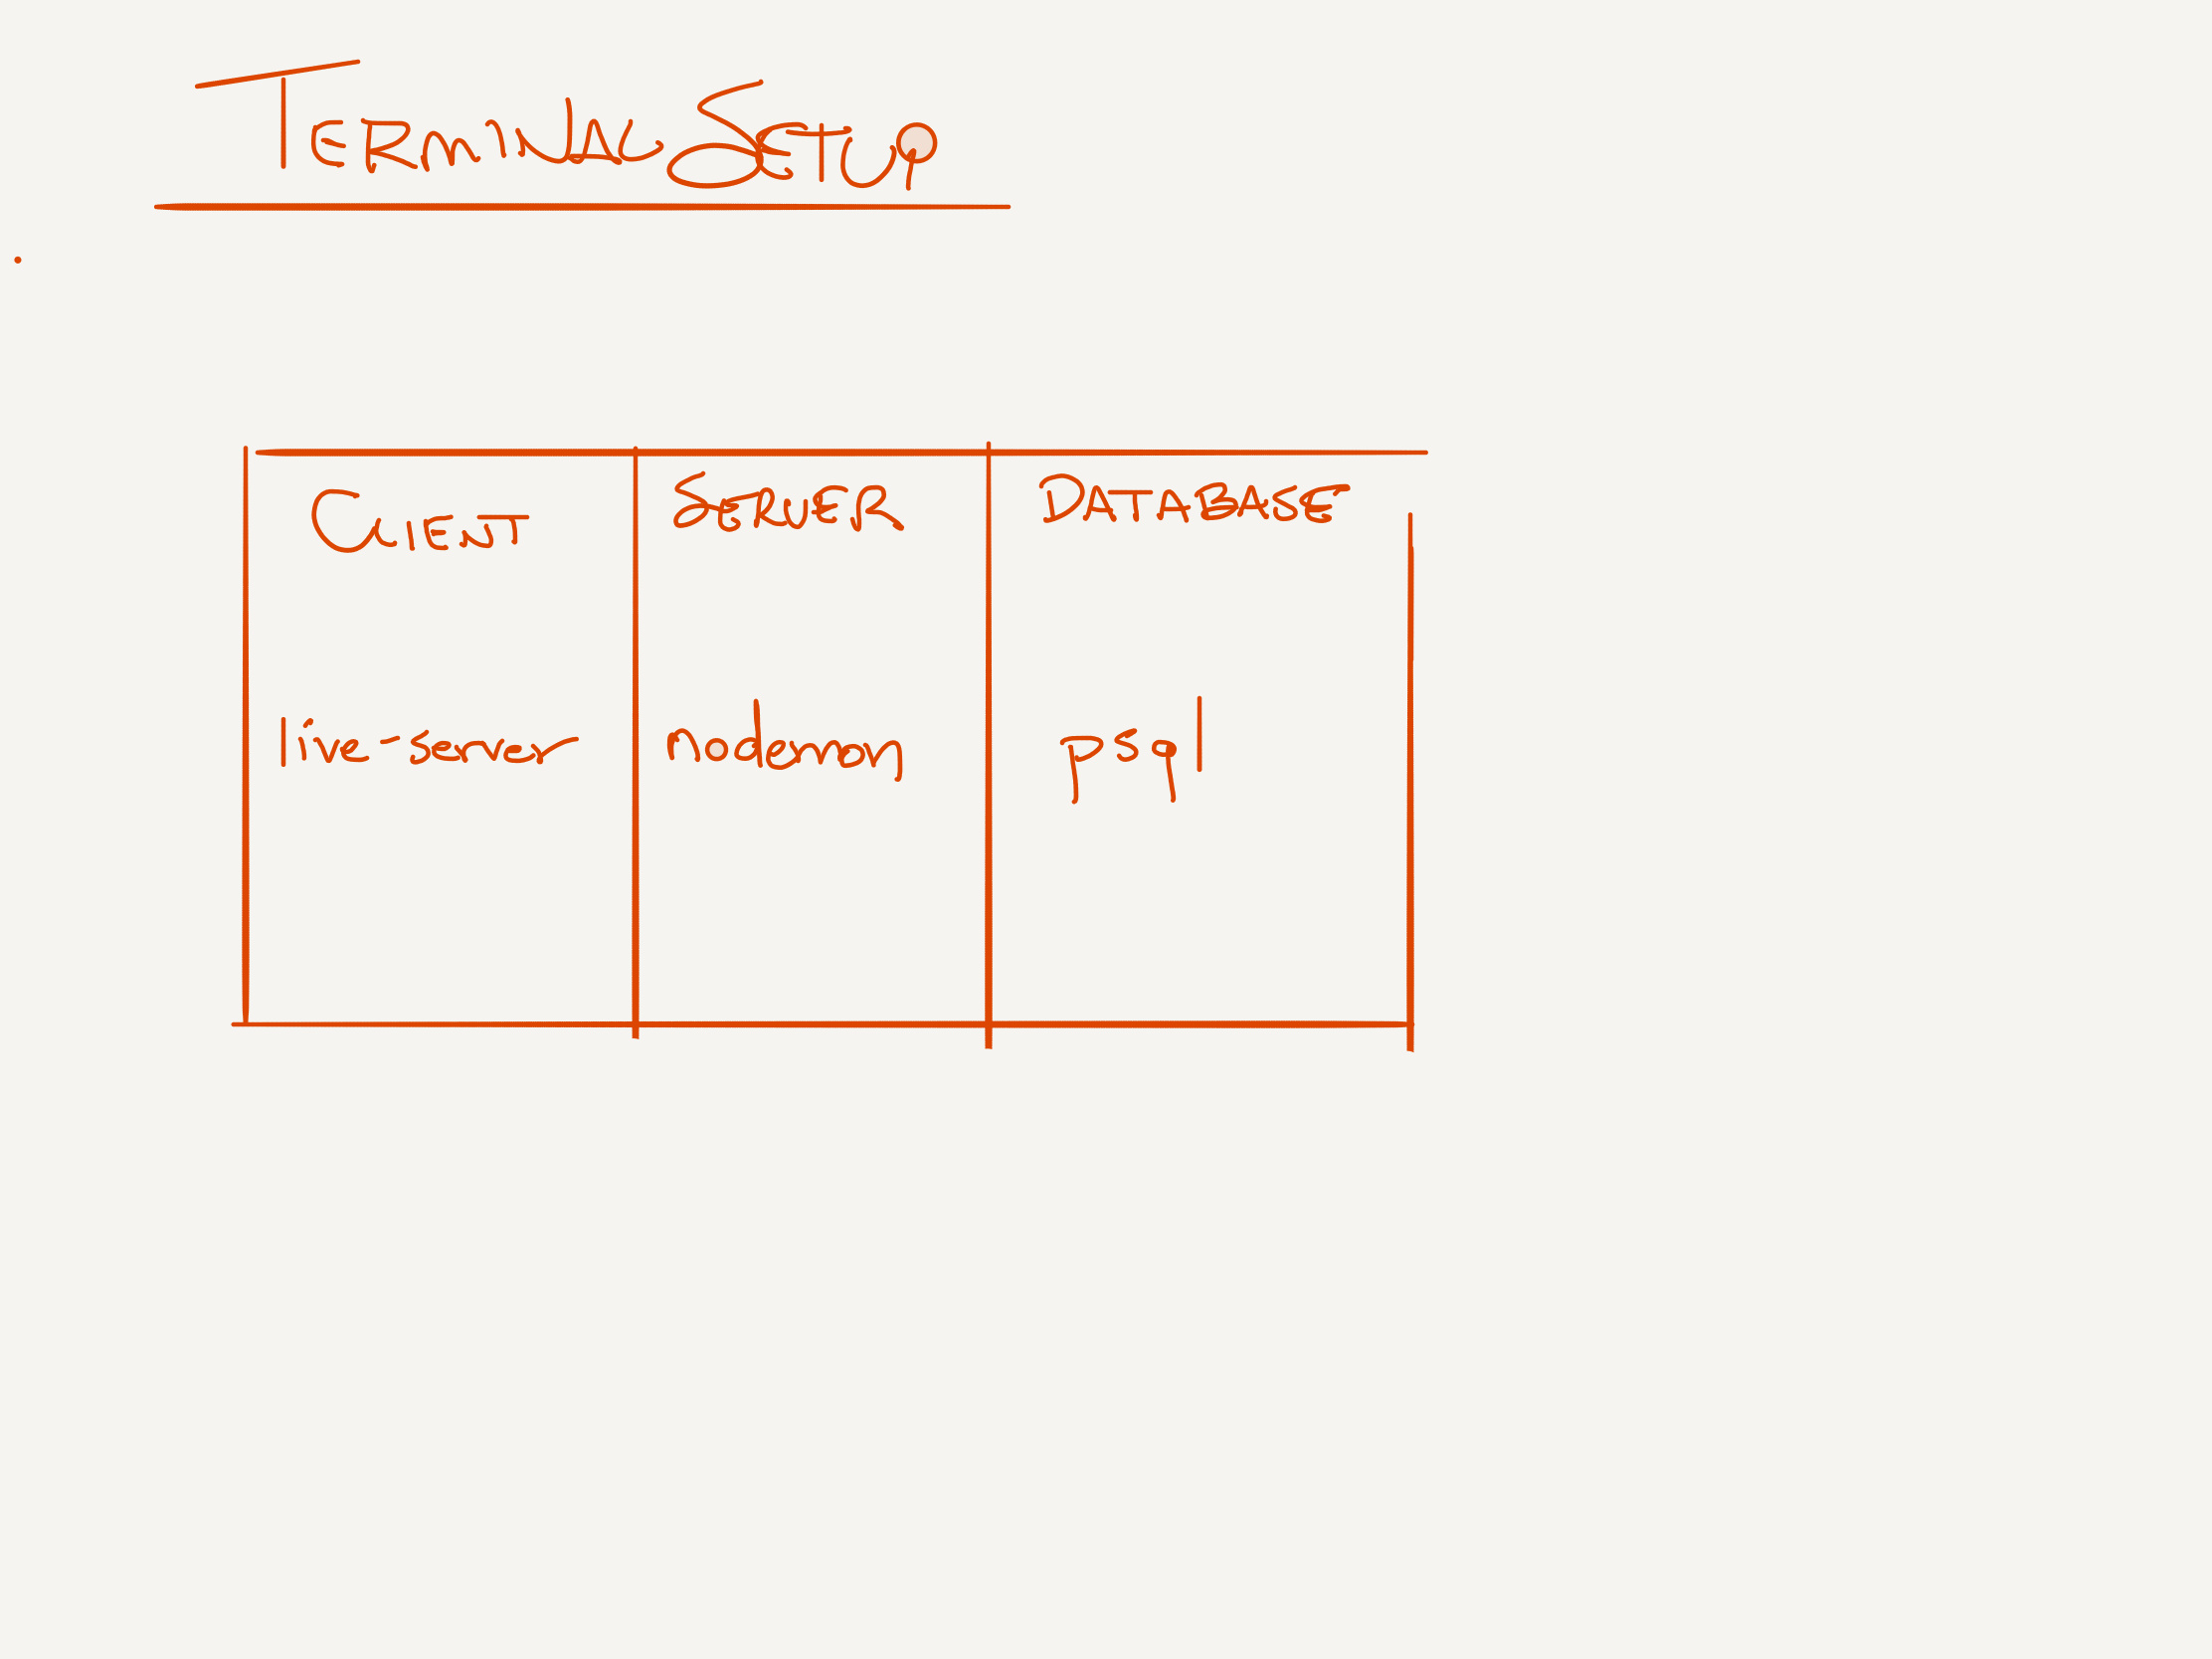 TERMINAL SETUP
CLIENT SERVER DATABASE
live-server nodemon psql